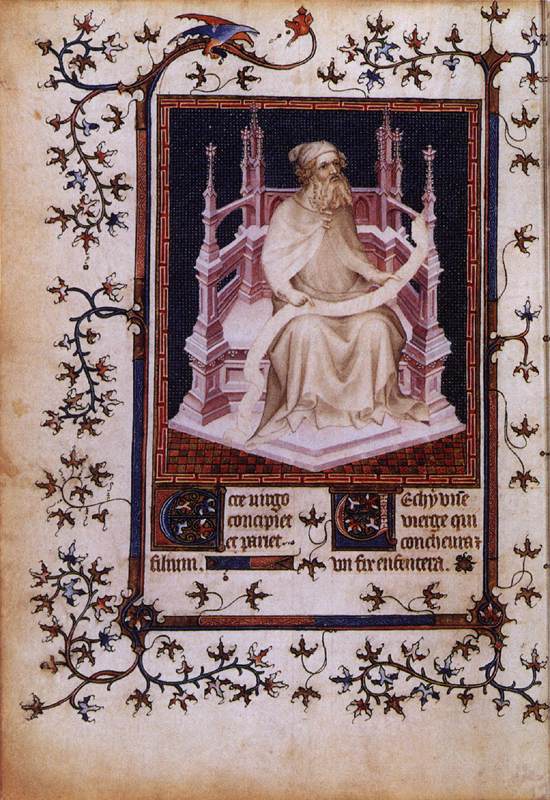 Ecce uirgo
concipiet
et pariet
filium.
VEchy vne
vierge qui
concheura ⁊
vn fix enfentera.